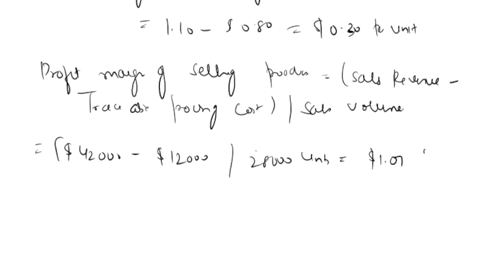 = 1.10 - $0.80 = $0.30 per unit
Profit margin of selling powder = (Sales Revenue -
Traceable processing cost) / Sales volume
= ($42000 - $12000 / 28000 units = $1.07